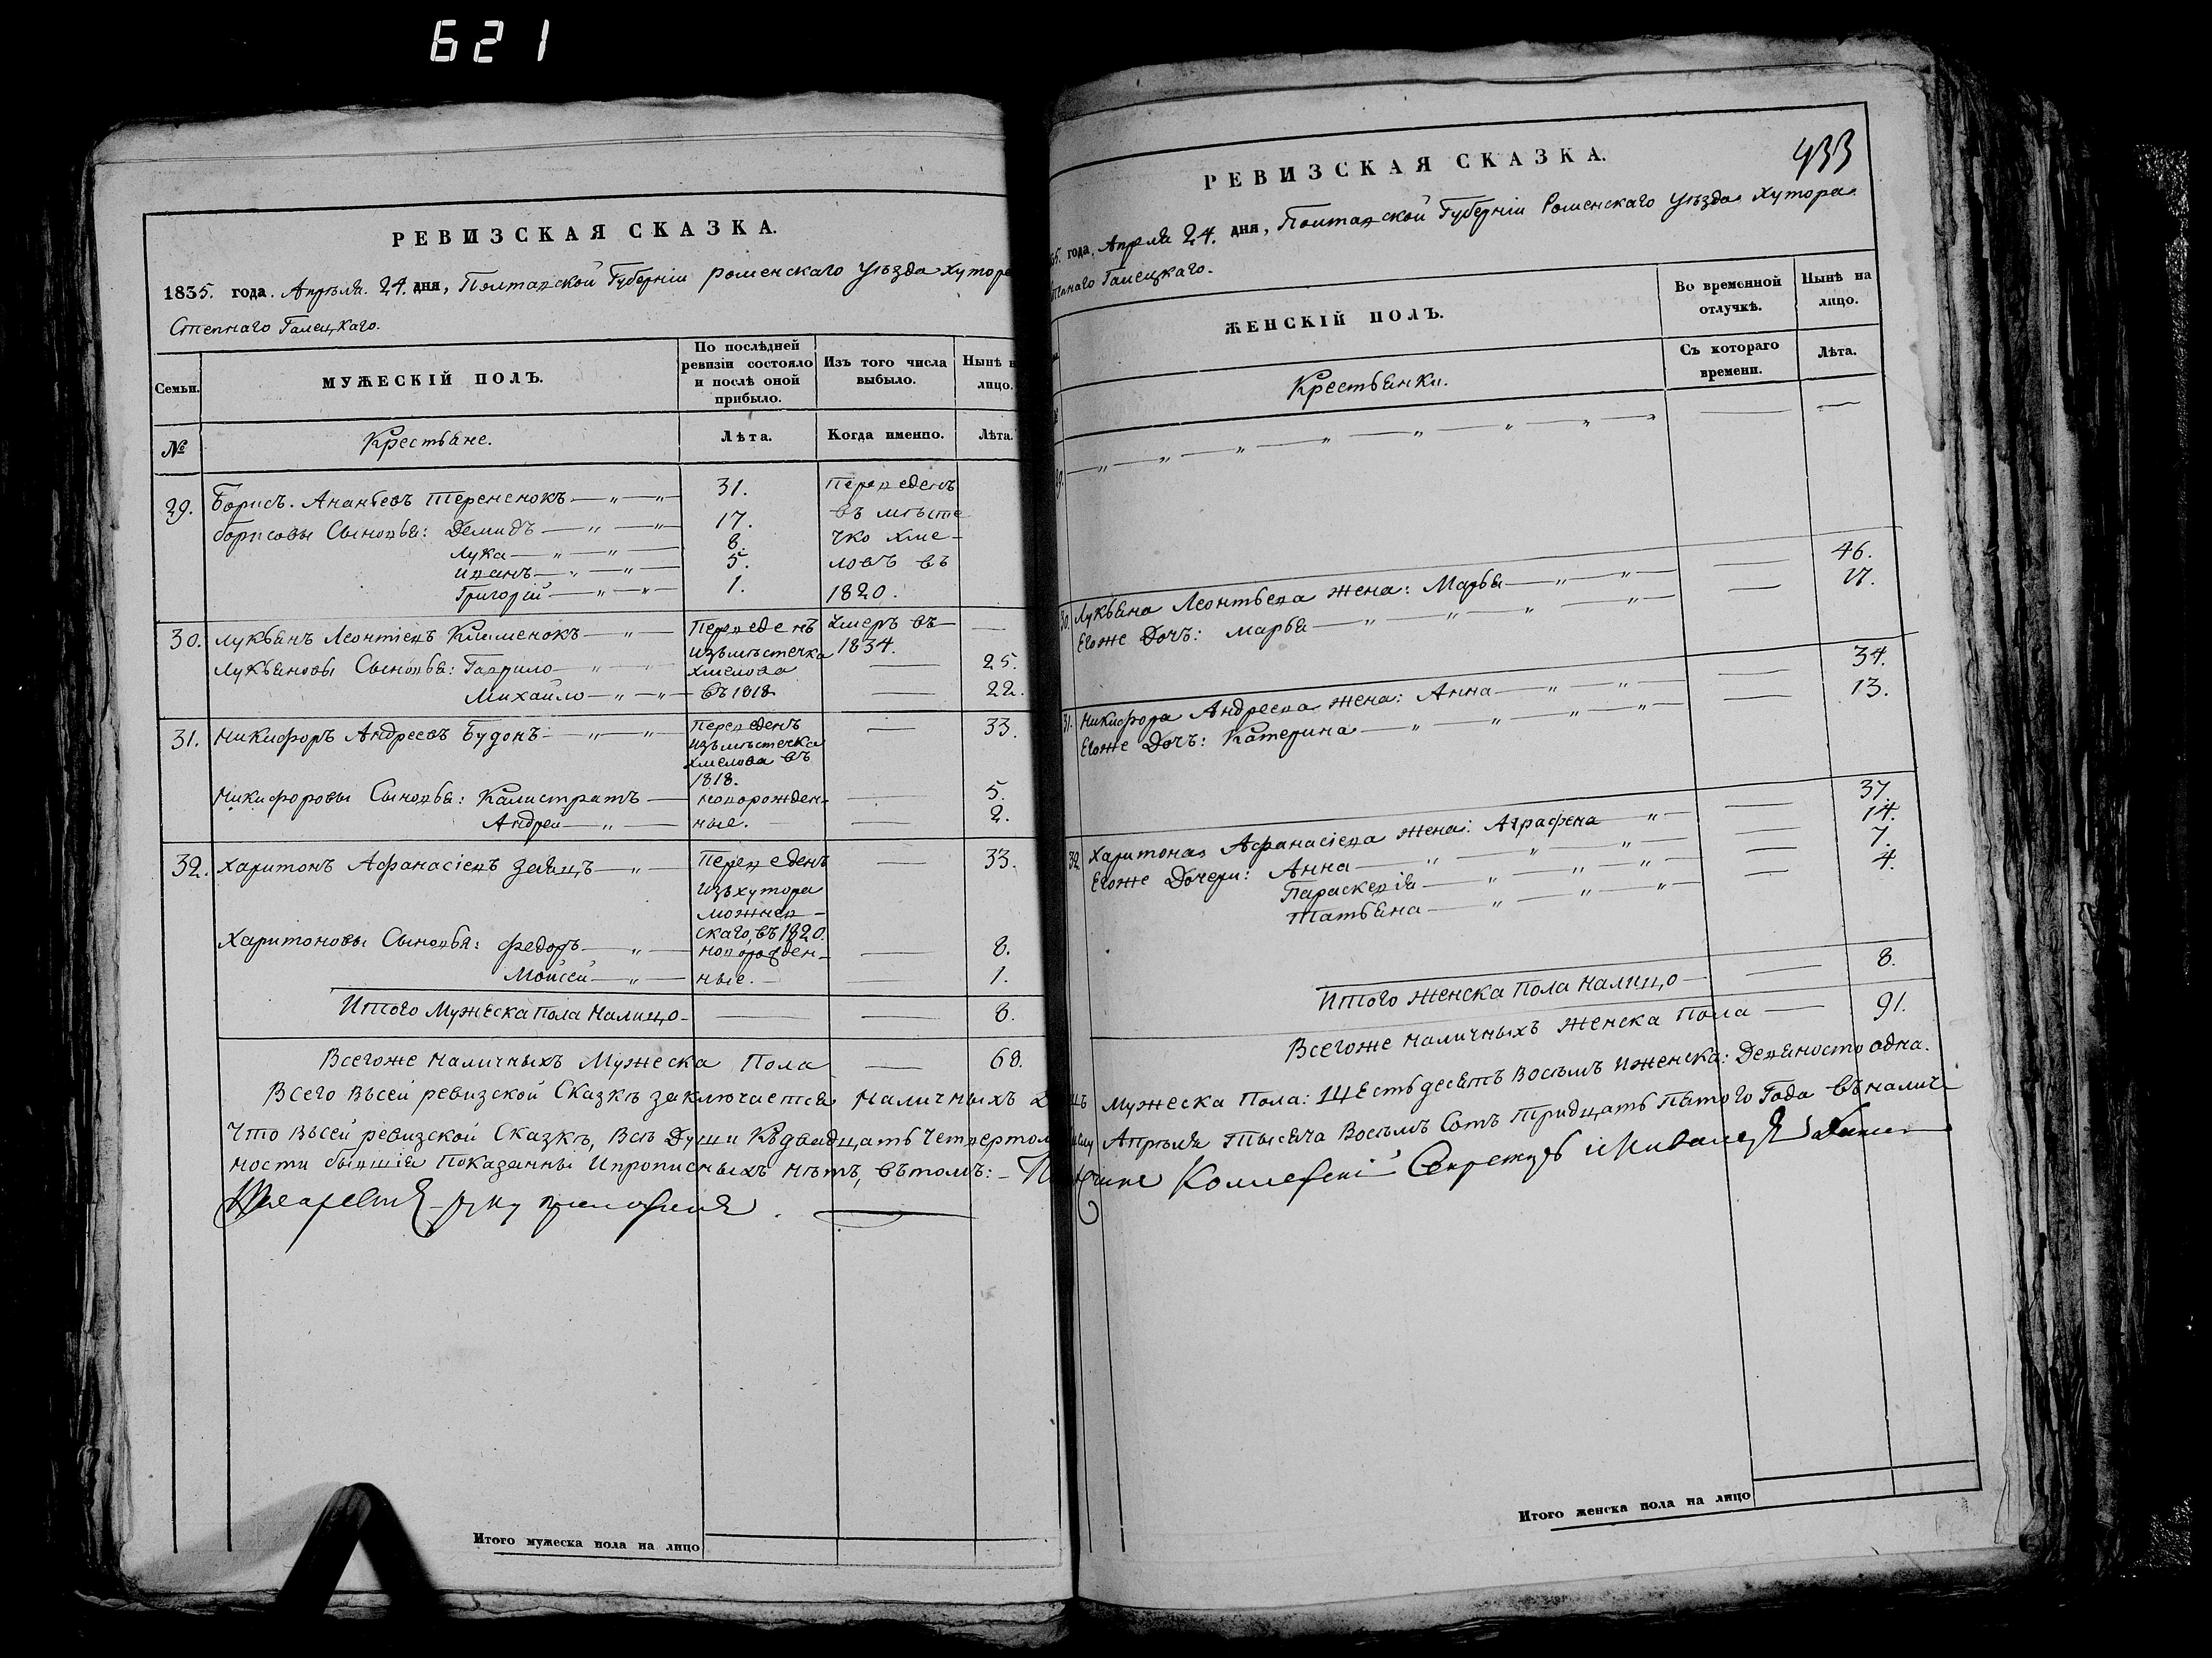 621
РЕВИЗСКАЯ СКАЗКА.
1835. года. Апрѣля. 24. дня, Полтавской Губерніи роменскаго уѣзда хутора
Степнаго Галецкаго.
Семьи.
МУЖЕСКІЙ ПОЛЪ.
По послѣдней ревизіи состояло и послѣ оной прибыло.
Изъ того числа выбыло.
Нынѣ н
лицо.
№
Крестьяне.
Лѣта.
Когда именно.
Лѣта.
29. Борисъ. Ананьевъ Терененокъ 31. Переведенъ
борисовы Сыновья: Демидъ 17. въ мѣсте
Лука 8. чко Хме-
Иванъ 5. ловъ въ
Григорій 1. 1820.
30. Лукьянъ Леонтіевъ Клименокъ Переведенъ умеръ въ
изъ мѣстечка 1834.
Лукьяновы Сыновья: Гаврило Хмелова 25.
Михайло въ 1818 22.
31. Никифоръ Андреевъ Будонъ Переведенъ 33.
изъ мѣстечка
Хмелова въ
1818.
Никифоровы Сыновья: Калистратъ новорожден- 5.
Андрей ные. 2.
32. Харитонъ Афанасіевъ Заяцъ Переведенъ 33.
изъ хутора
Можнев-
скаго, въ 1820.
Харитоновы Сыновья: Федоръ новорожден- 8.
Мойсей ные. 1.
Итого Мужеска пола налицо 8.
Всегоже наличныхъ Мужеска Пола 68.
Всего въсей ревизской Сказкѣ заключается наличныхъ
Что въсей ревизской Сказкѣ, всѣ Души къдвадцать четвертом
ности бывшія показанны ипрописныхъ нѣтъ, вътомъ:
руку приложилъ.
Итого мужеска пола на лицо
433
РЕВИЗСКАЯ СКАЗКА.
35. года, Апрѣля 24. дня, Полтавской Губерніи Роменскаго уѣзда Хутора
Степнаго Галецкаго.
ЖЕНСКІЙ ПОЛЪ.
Во временной отлучкѣ.
Нынѣ на лицо.
Съ котораго времени.
Лѣта.
Крестьянки.
29.
30. Лукьяна Леонтьева жена: Марья 46.
Егоже Дочь: Марья 17.
31. Никифора Андреева жена: Анна 34.
Егоже Дочь: Катерина 13.
32. Харитона Афанасіева жена: Аграфена 37.
Егоже Дочери: Анна 14.
Параскевія 7.
Татьяна 4.
Итого женска пола налицо 8.
Всегоже наличныхъ женска пола 91.
Мужеска Пола: Шестьдесятъ восѣмъ иженска: Девяносто одна.
Апрѣля Тысяча Восѣмъ Сотъ Тридцать Пятого Года въналич
Секретарь
Итого женска пола на лицо